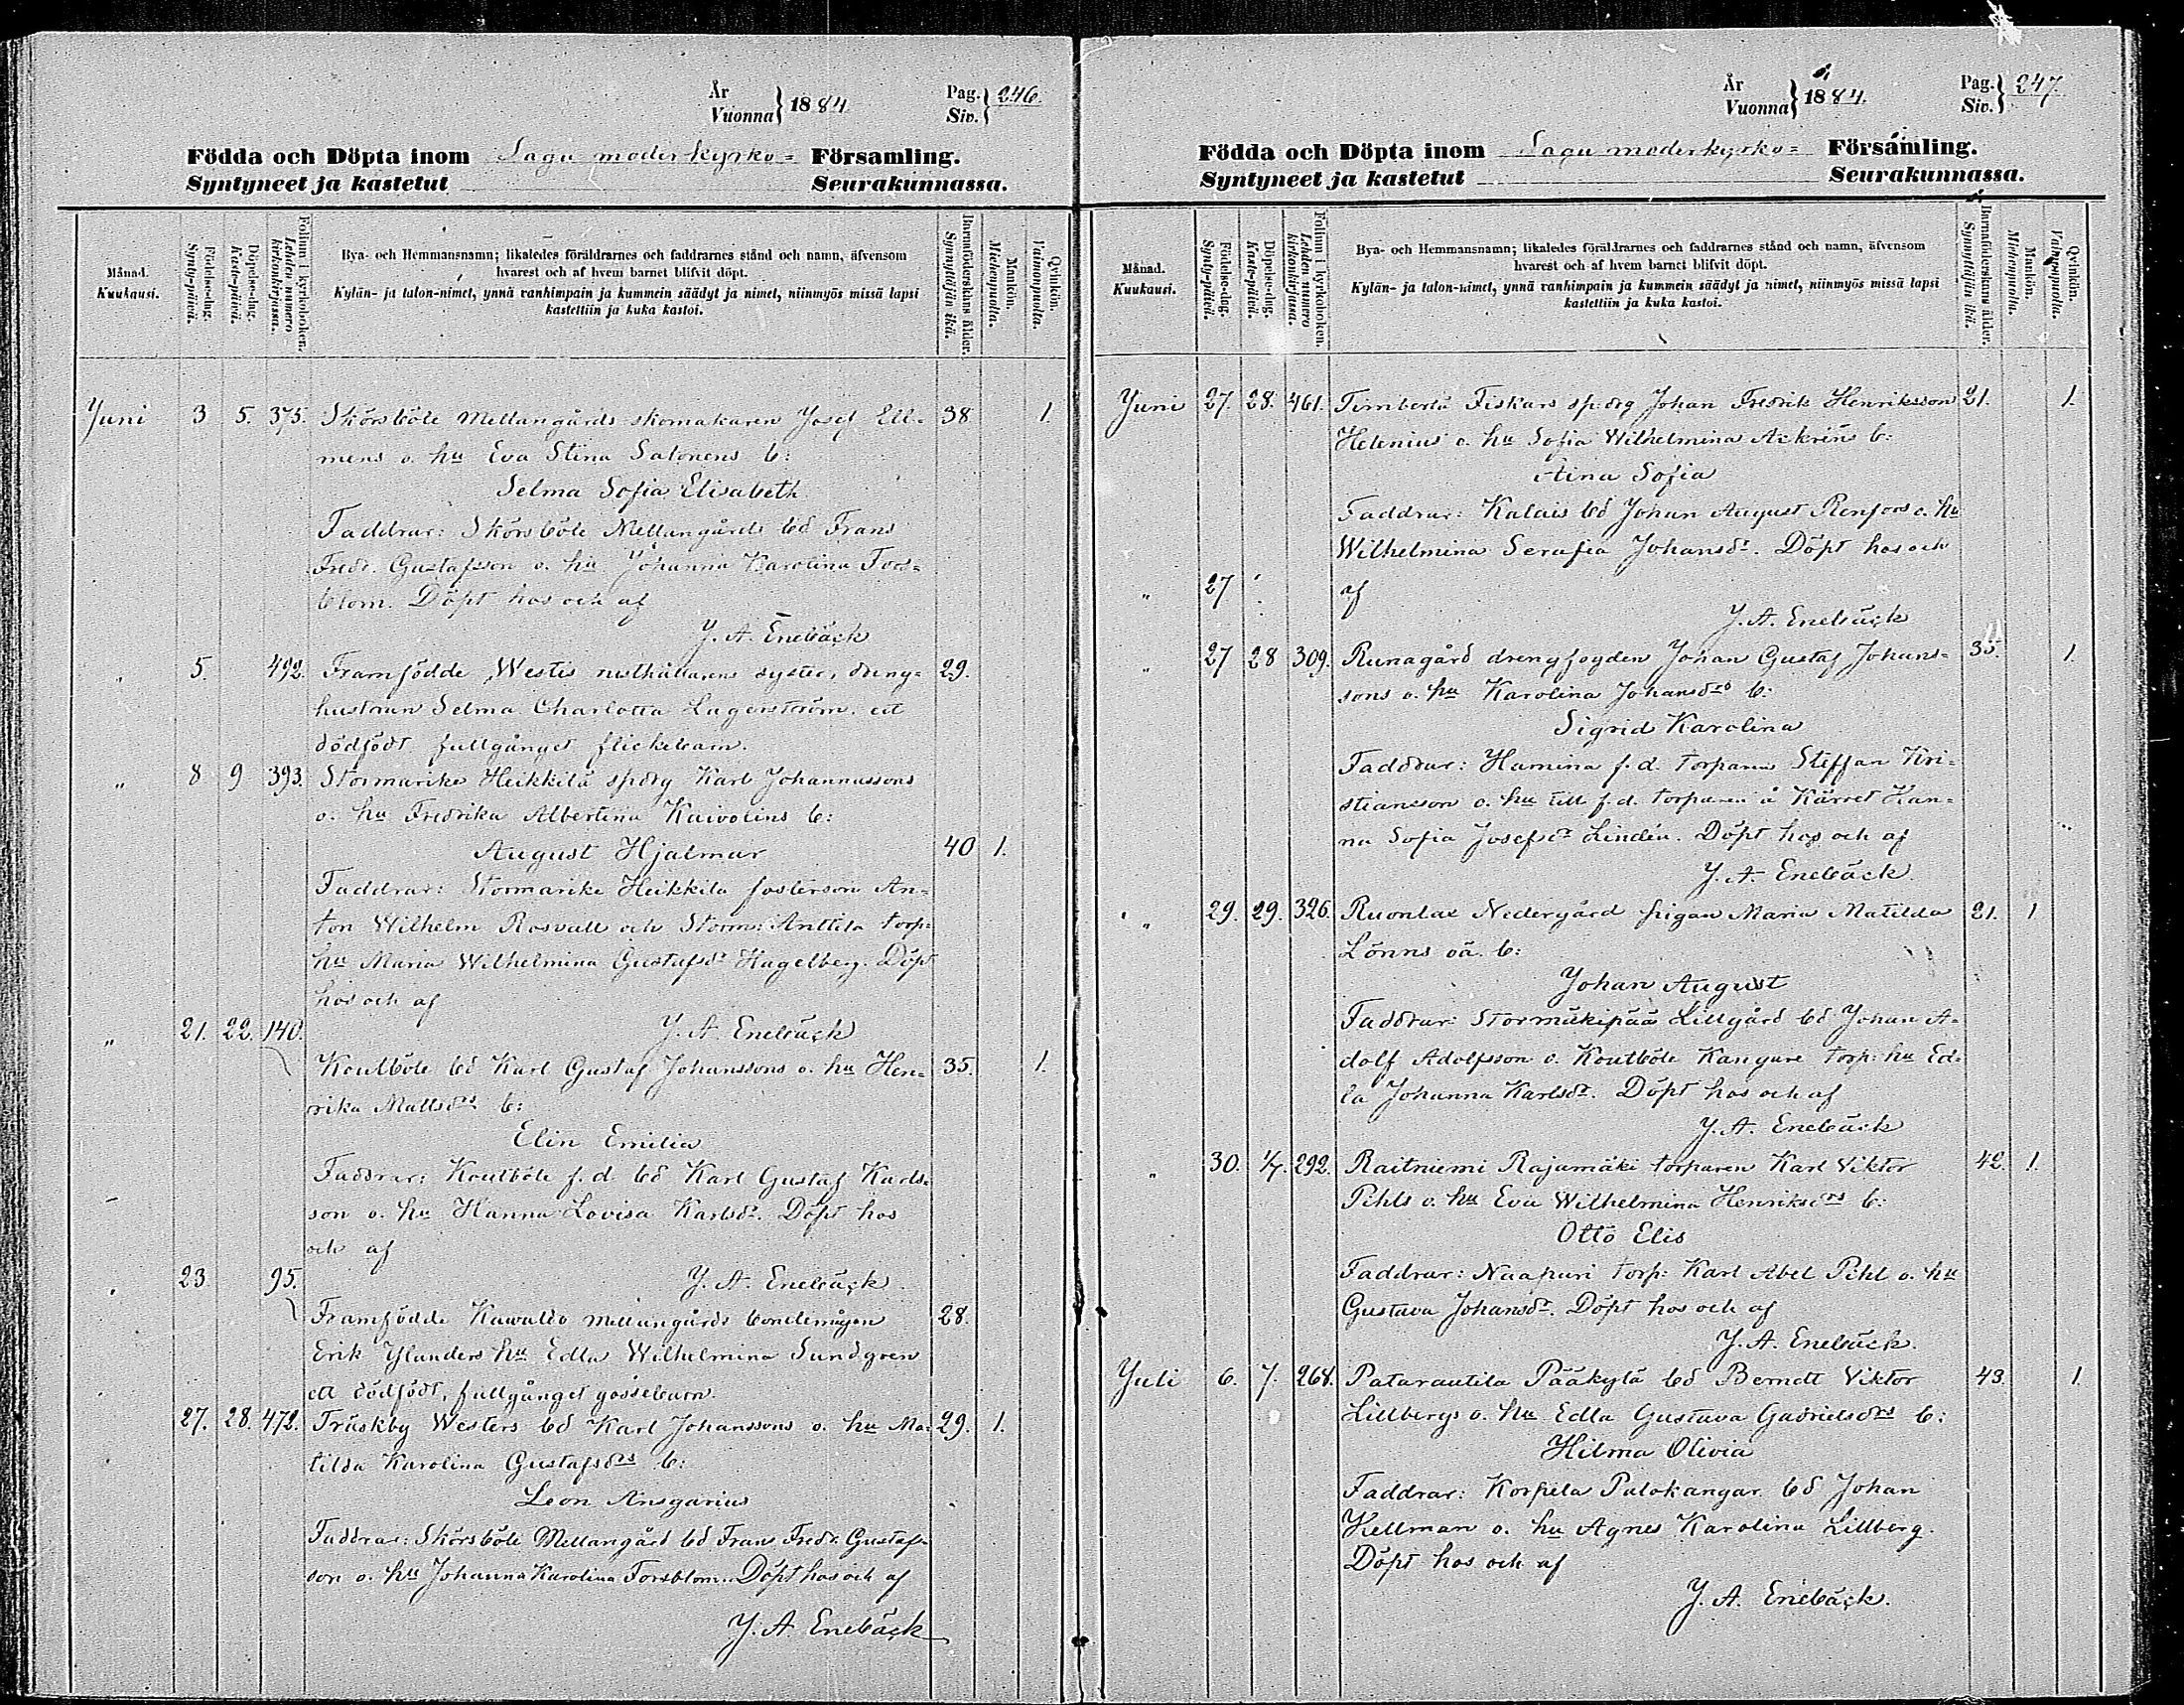 År
Vuonna } 1884
Pag.
Siv. } 246.
Födda och Döpta inom Sagu moderkyrko= Församling.
Syntyneet ja kastetut Seurakunnassa.
Månad.
Kuukausi.
Födelse-dag.
Synty-päivä.
Döpelse-dag.
Kaste-päivä.
Folium i kyrkoboken.
Lehden numero kirkonkirjassa.
Bya- och Hemmansnamn; likaledes föräldrarnes och faddrarnes stånd och namn, äfvensom
hvarest och af hvem barnet blifvit döpt.
Kylän- ja talon-nimet, ynnä vanhimpain ja kummein säädyt ja nimet, niinmyös missä lapsi
kastettiin ja kuka kastoi.
Barnaföderskans ålder.
Synnyttäjän ikä.
Mankön.
Miehenpuolta.
Qvinkön.
Vaimonpuolta.
Juni 3 5. 375. Skörsböle Mellangårds skomakaren Josef Ell= 38 1.
mens o. hu Eva Stina Salonens b:
Selma Sofia Elisabeth
Faddrar: Skörsböle Mellangårds bd Frans
Fredr. Gustafsson o. hu Johanna Karolina Fors=
blom. Döpt hos och af
J. A. Enebäck
" 5. 492. Framfödde Westis rusthållarens syster, dreng= 29.
hustrun Selma Charlotta Lagerström ett
dödfödt fullgånget flickebarn.
" 8 9 393. Stormarike Heikkilä spdrg Karl Johannessons
o. hu Fredrika Albertina Kaivolins b:
August Hjalmar 40 1.
Faddrar: Stormarike Heikkila fosterson An=
ton Wilhelm Rosvall och Storm: Anttila torp:
hu Maria Wilhelmina Gustafsdr Hagelberg. Döpt
hos och af
" 21. 22. 140. J. A. Enebäck
Koutböle bd Karl Gustaf Johanssons o. hu Hen= 35. 1.
rika Mattsdrs b:
Elin Emilia
Faddrar: Koutböle f. d. bd Karl Gustaf Karls=
son o. hu Hanna Lovisa Karlsdr. Döpt hos
och af
" 23 95. J. A. Enebäck
Framfödde Kawaldo Mellangårds bondemågen 28.
Erik Ylanders hu Edla Wilhelmina Sundgren
ett dödfödt, fullgånget gossebarn.
27. 28. 472. Träskby Westers bd Karl Johanssons o. hu Ma= 29. 1.
tilda Karolina Gustafsdrs b:
Leon Ansgarius
Faddrar: Skörsböle Mellangård bd Frans Fredr. Gustafs=
son o. hu Johanna Karolina Forsblom. Döpt hos och af
J. A. Enebäck
År
Vuonna } 1884.
Pag.
Siv. } 247.
Födda och Döpta inom Sagu moderkyrko= Församling.
Syntyneet ja kastetut Seurakunnassa.
Månad.
Kuukausi.
Födelse-dag.
Synty-päivä.
Döpelse-dag.
Kaste-päivä.
Folium i kyrkoboken.
Lehden numero kirkonkirjassa.
Bya- och Hemmansnamn; likaledes föräldrarnes och faddrarnes stånd och namn, äfvensom
hvarest och af hvem barnet blifvit döpt.
Kylän- ja talon-nimet, ynnä vanhimpain ja kummein säädyt ja nimet, niinmyös missä lapsi
kastettiin ja kuka kastoi.
Barnaföderskans ålder.
Synnyttäjän ikä.
Mankön.
Miehenpuolta.
Qvinkön.
Vaimonpuolta.
Juni 27. 28. 461. Timberlä Fiskars sp:drg Johan Fredrik Henriksson 21. 1.
Helenius o. hu Sofia Wilhelmina Ackréns b:
Aina Sofia
Faddrar: Kalais bd Johan August Renfors o. hu
Wilhelmina Serafia Johansdr. Döpt hos och
" 27 af
J. A. Enebäck
" 27 28 309. Runagård drengfogden Johan Gustaf Johans= 35. 1.
sons o. hu Karolina Johansdrs b:
Sigrid Karolina
Faddrar: Hamina f. d. torparen Steffan Kri=
stiansson o. hu till f. d. torparen å Kärret Han=
na Sofia Josefsdr Lindén. Döpt hos och af
J. A. Enebäck.
" 29. 29. 326. Ruonlax Nedergård pigan Maria Matilda 21. 1
Lönns oä. b:
Johan August
Faddrar: Stormäkipää Lillgård bd Johan A=
dolf Adolfsson o. Koutböle Kangare torp: hu Ed=
la Johanna Karlsdr. Döpt hos och af
J. A. Enebäck
" 30. 1/7. 292. Raitniemi Rajamäki torparen Karl Viktor 42. 1.
Pihls o. hu Eva Wilhelmina Henriksdrs b:
Otto Elis
Faddrar: Naapuri torp: Karl Abel Pihl o. hu
Gustava Johansdr. Döpt hos och af
J. A. Enebäck.
Juli 6. 7. 268. Patarautila Pääkylä bd Berndt Viktor 43. 1.
Lillbergs o. hu Edla Gustava Gabrielsdrs b:
Hilma Olivia
Faddrar: Korpela Pulokangar bd Johan
Kellman o. hu Agnes Karolina Lillberg.
Döpt hos och af
J. A. Enebäck.